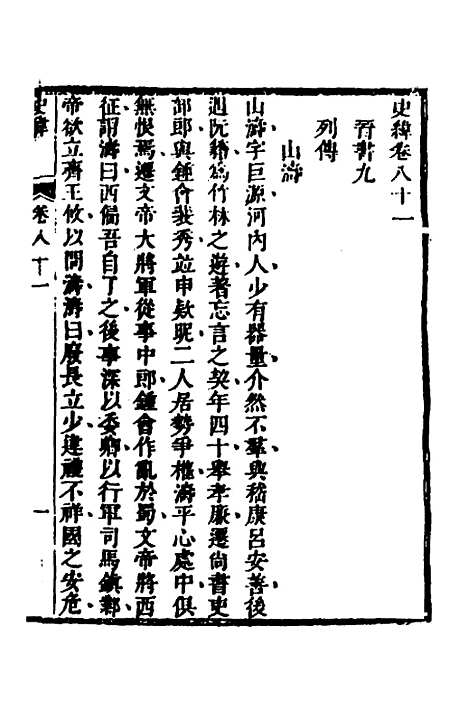 史緯卷八十一
晉書九
列傳
山濤
山濤字巨源河內人少有器量介然不羣與嵇康呂安善後
遇阮籍爲竹林之遊著忘言之契年四十舉孝廉遷尚書吏
部郎與鍾會裴秀竝申欵昵二人居勢爭權濤平心處中俱
無恨焉遷文帝大將軍從事中郎鍾會作亂於蜀文帝將西
征謂濤曰西偏吾自了之後事深以委卿以行軍司馬鎮鄴
帝欲立齊王攸以問濤濤曰廢長立少違禮不祥國之安危
史緯
卷八十一
一